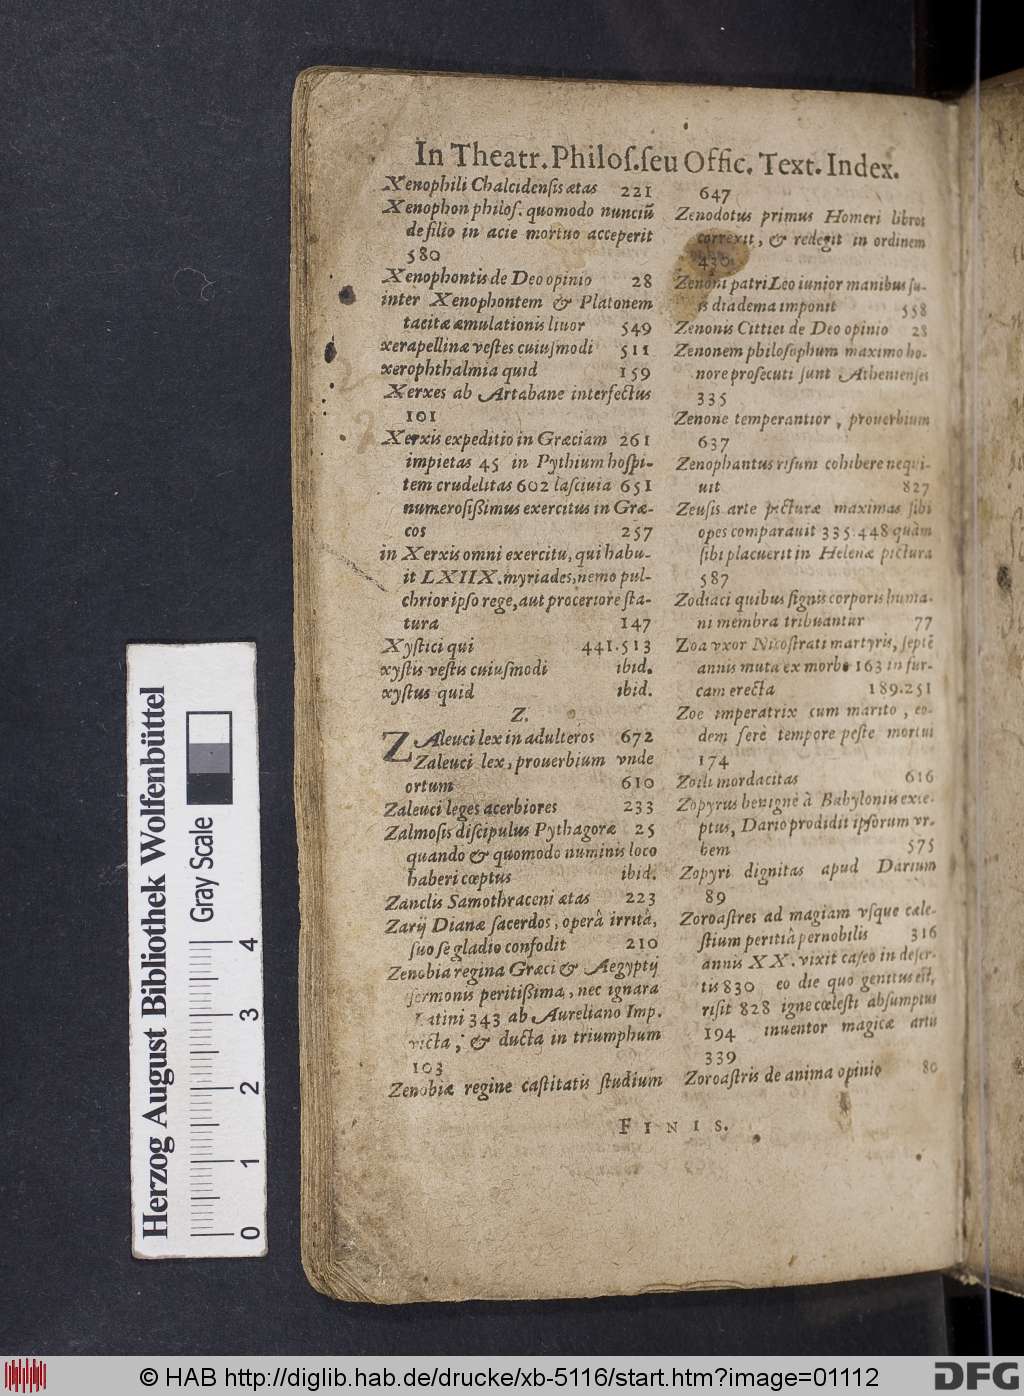 In Theatr. Philos. seu Offic. Text. Index.
Xenophili Chalcidensis ætas 221
Xenophon philos. quomodo nunciũ
de filio in acie mortuo acceperit
580
Xenophontis de Deo opinio 28
inter Xenophontem & Platonem
tacitæ æmulationis liuor 549
xerapellinæ vestes cuiusmodi 511
xerophthalmia quid 159
Xerxes ab Artabane interfectus
101
Xerxis expeditio in Græciam 261
impietas 45 in Pythium hospi-
tem crudelitas 602 lasciuia 651
numerosißimus exercitus in Græ-
cos 257
in Xerxis omni exercitu, qui habu-
it LXIIX. myriades, nemo pul-
chrior ipso rege, aut proceriore sta-
tura 147
Xystici qui 441.513
xystis vestis cuiusmodi ibid.
xystus quid ibid.
Z.
ZAleuci lex in adulteros 672
Zaleuci lex, prouerbium vnde
ortum 610
Zaleuci leges acerbiores 233
Zalmosis discipulus Pythagoræ 25
quando & quomodo numinis loco
haberi cœptus ibid.
Zanclis Samothraceni ætas 223
Zarij Dianæ sacerdos, operâ irritâ,
suo se gladio confodit 210
Zenobia regina Græci & Aegyptij
sermonis peritißima, nec ignara
Latini 343 ab Aureliano Imp.
victa, & ducta in triumphum
103
Zenobiæ regine castitatis studium
647
Zenodotus primus Homeri libros
correxit, & redegit in ordinem
430
Zenoni patri Leo iunior manibus su-
is diadema imponit 558
Zenonis Cittiei de Deo opinio 28
Zenonem philosophum maximo ho-
nore prosecuti sunt Athenienses
335
Zenone temperantior, prouerbium
637
Zenophantus risum cohibere nequi-
uit 827
Zeusis arte picturæ maximas sibi
opes comparauit 335.448 quàm
sibi placuerit in Helenæ pictura
587
Zodiaci quibus signis corporis huma-
ni membra tribuantur 77
Zoa vxor Nicostrati martyris, septẽ
annis muta ex morbo 163 in fur-
cam erecta 189.251
Zoe imperatrix cum marito, eo-
dem ferè tempore peste mortui
174
Zoili mordacitas 616
Zopyrus benignè à Babyloniis exce-
ptus, Dario prodidit ipsorum vr-
bem 575
Zopyri dignitas apud Darium
89
Zoroastres ad magiam vsque cæle-
stium peritiâ pernobilis 316
annis XX. vixit caseo in deser-
tis 830 eo die quo genitus est,
risit 828 igne cœlesti absumptus
194 inuentor magicæ artis
339
Zoroastris de anima opinio 80
FINIS.
Herzog August Bibliothek Wolfenbüttel
Gray Scale
0 1 2 3 4
© HAB http://diglib.hab.de/drucke/xb-5116/start.htm?image=01112
DFG